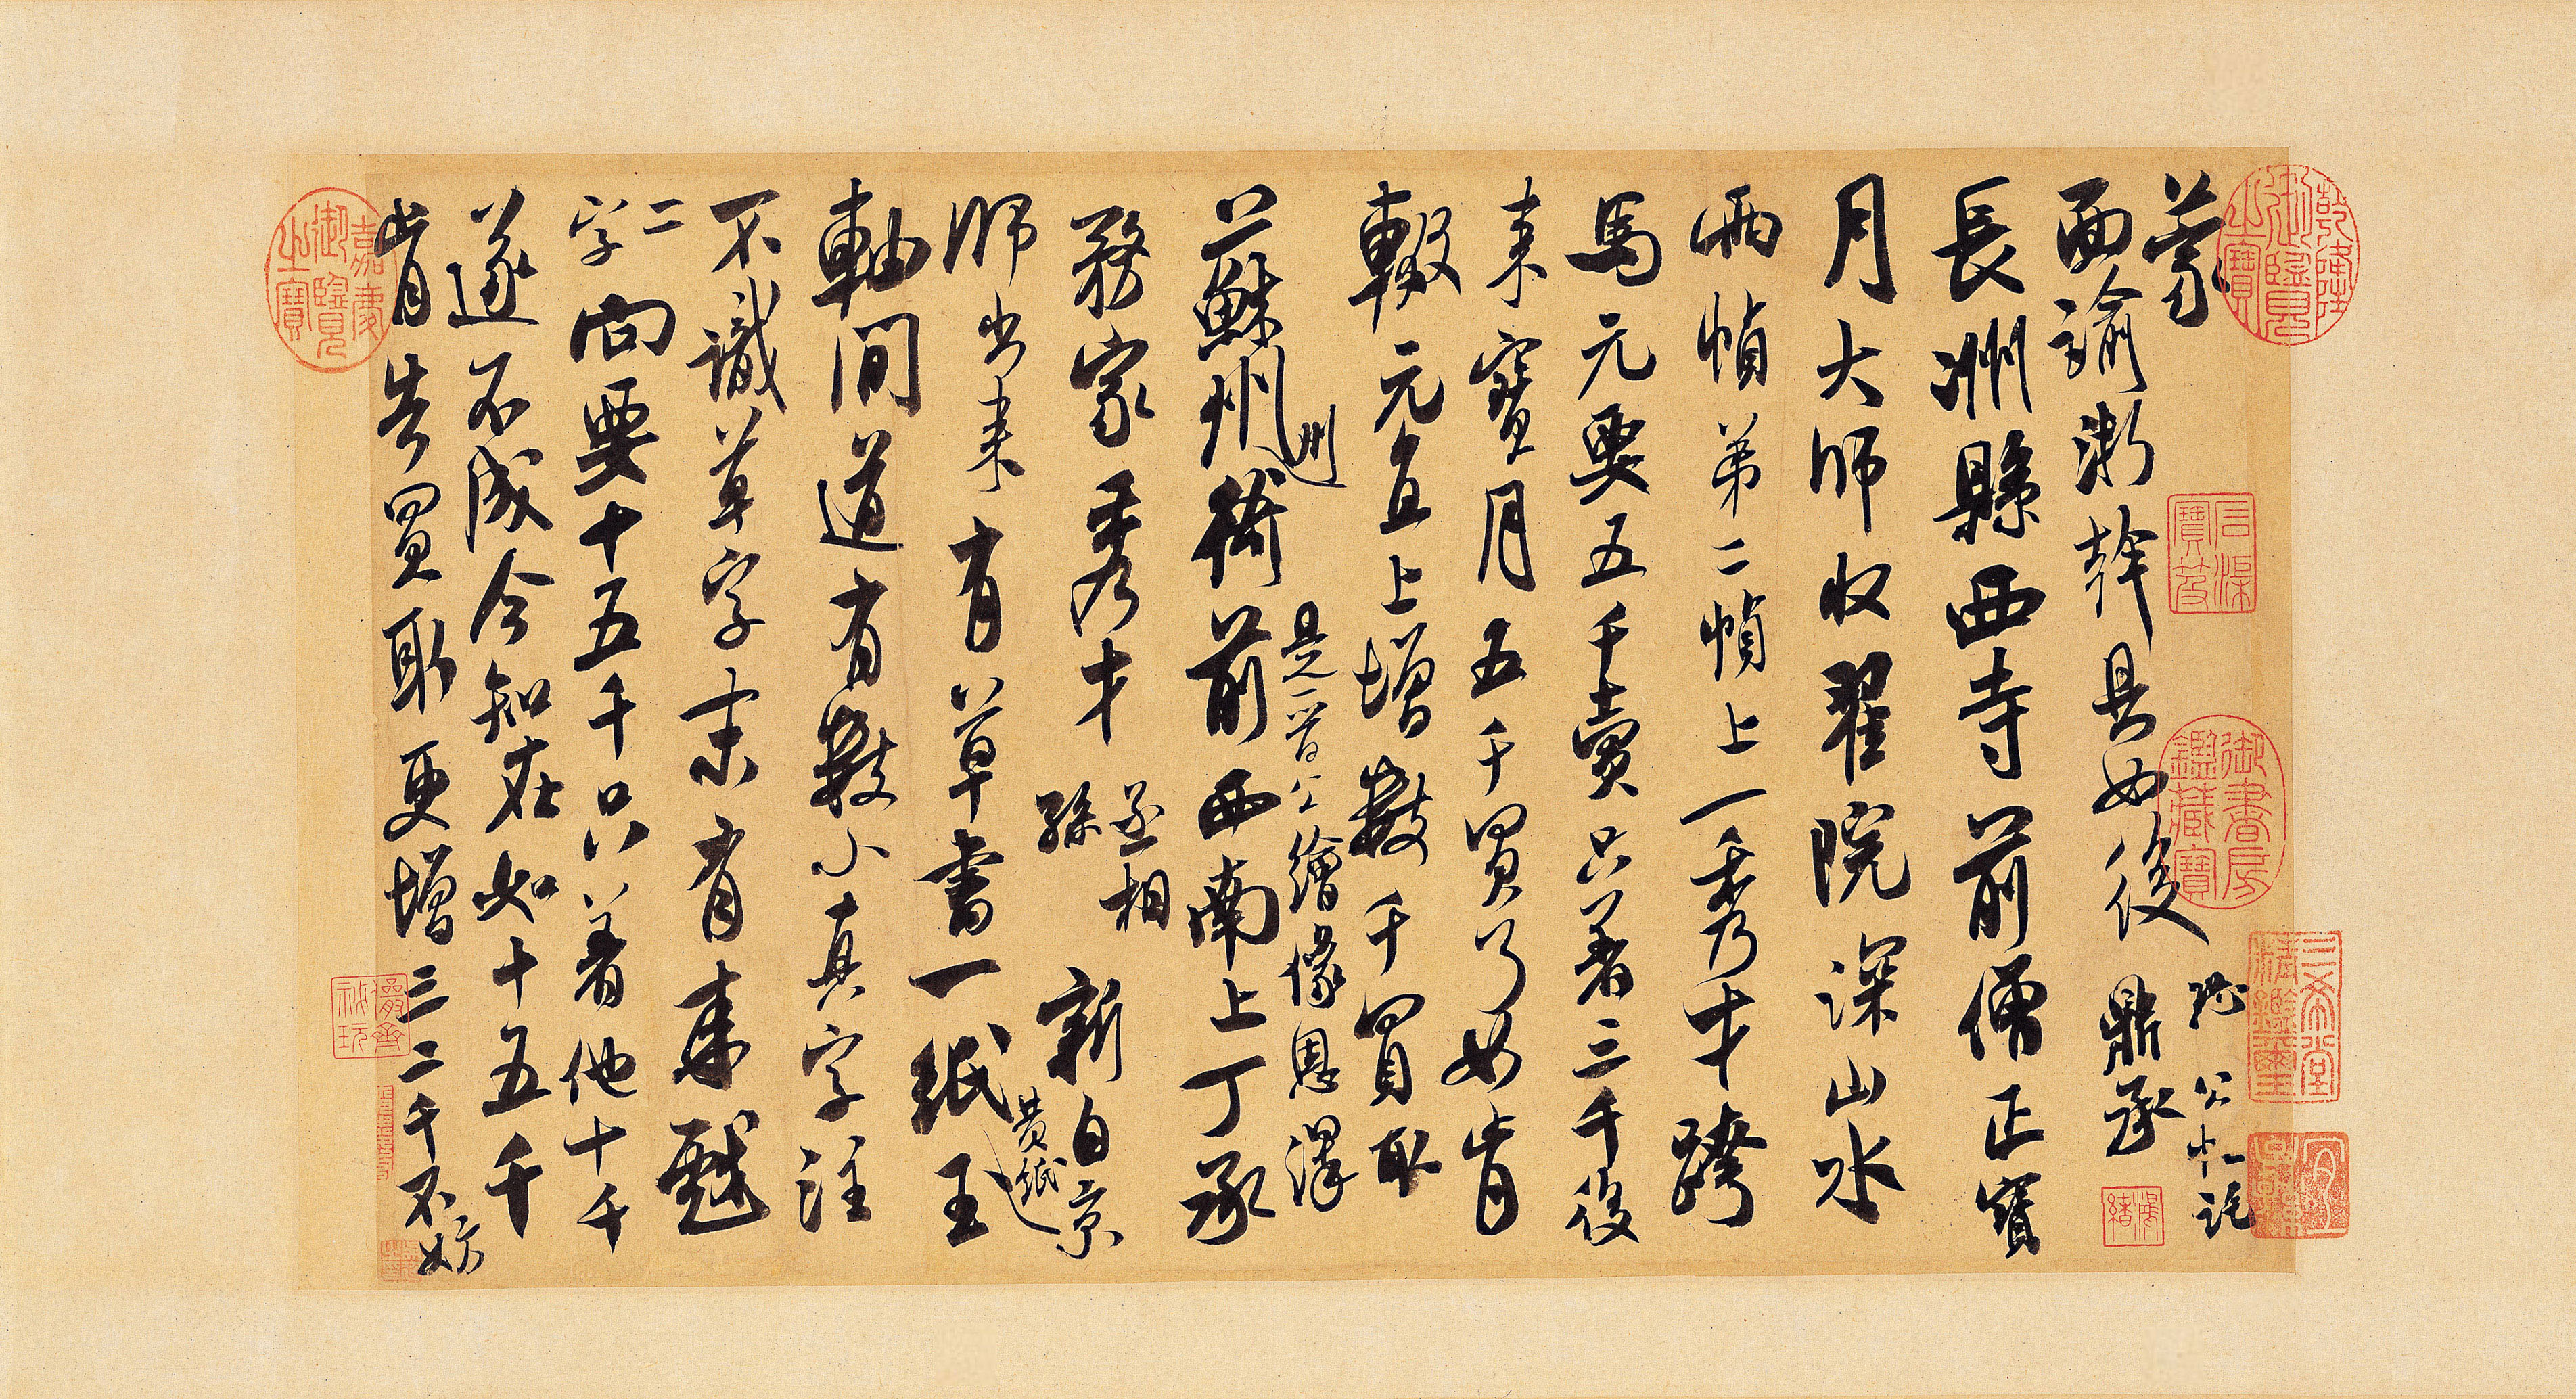 蒙
面諭浙幹具如後
鼎丞
長洲縣西寺前僧正寶
月大師收翟院深山水
兩幀第二幀上一秀才跨
馬元要五千賣只著三千後
來寶月五千買了如肯
輟元直上增數千買取
是一晉公繪像恩澤
蘇州州衙前西南上丁承
務家秀才
丞相
孫
新自京
師出來有草書一紙
黃紙
軸間道有數小真字注
不識草字末有來戲
二字向要十五千只著他十千
遂不成今知在如十五千
肯告買取更增三二千不妨
乾隆御覽之寶
石渠寶笈
御書房鑑藏寶
三希堂精鑑璽
宜子孫
嘉慶御覽之寶